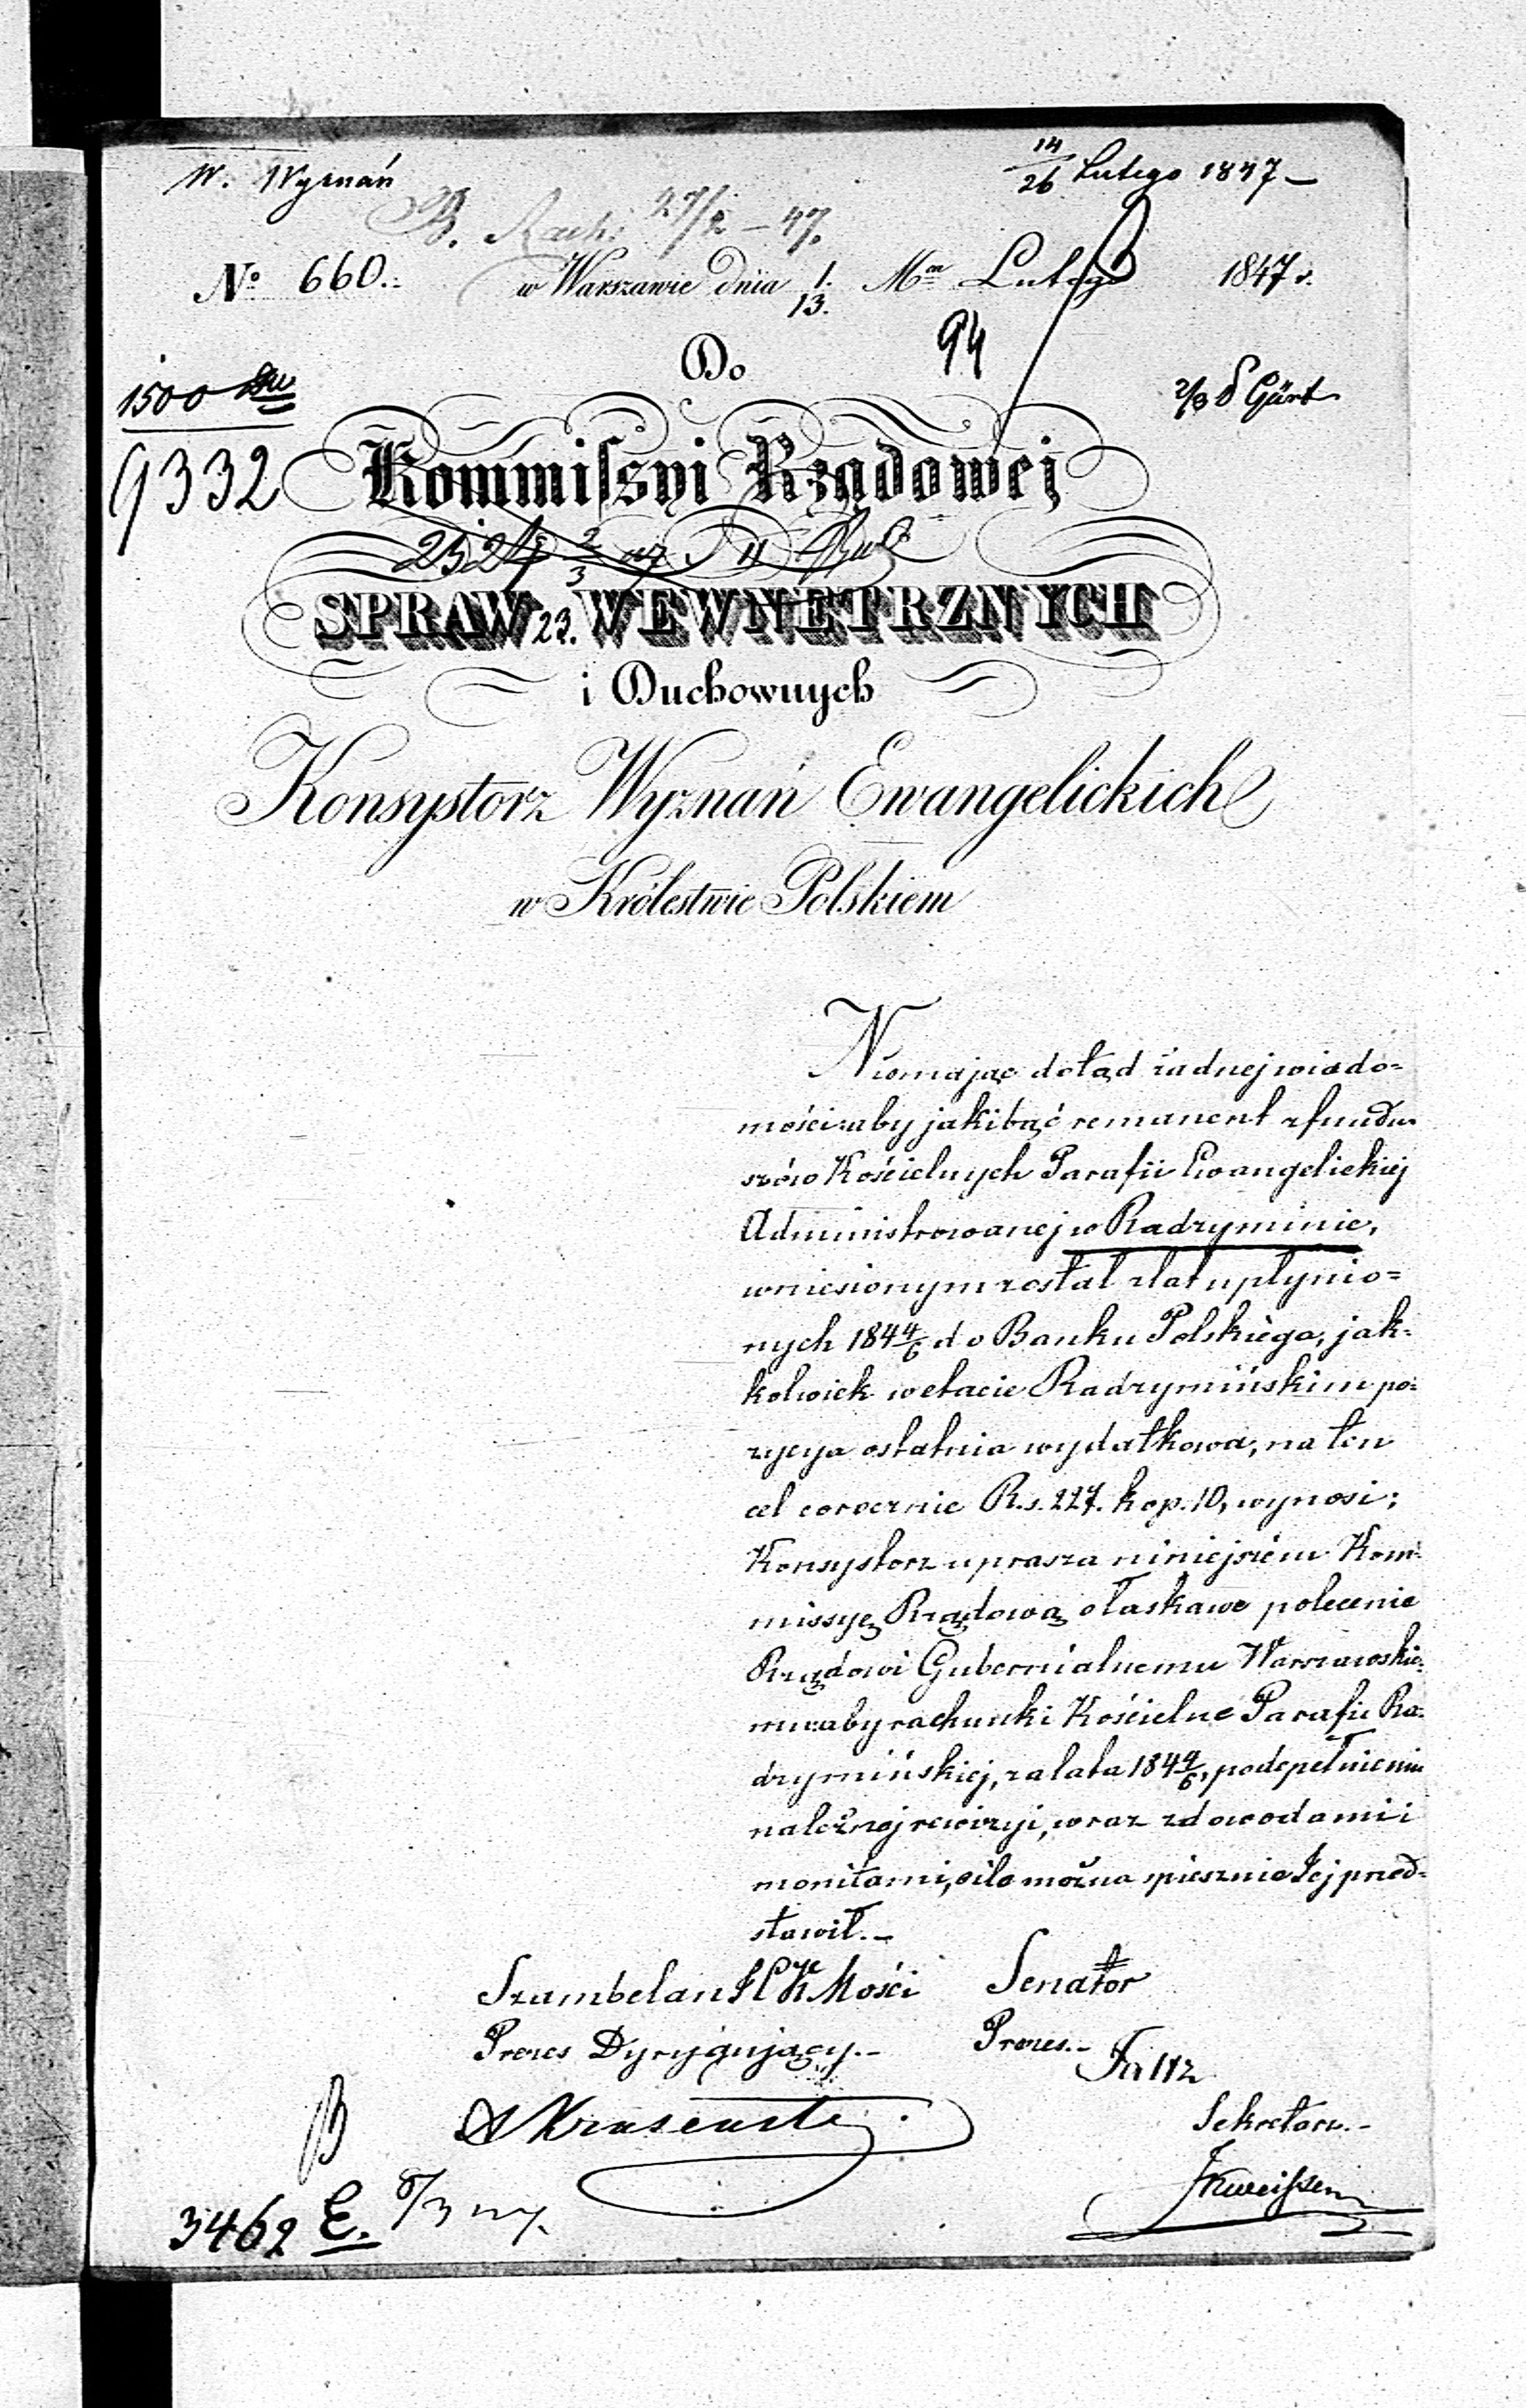 W. Wyznań
14/26 Lutego 1847 –
B. Rach: 27/2 – 47.
No 660. w Warszawie dnia 1./13. Mca Lutego 1847 r.
94
Do
1500
2/3 Gürt
9332
Kommissyi Rządowej
2/3
SPRAW WEWNĘTRZNYCH
23.
i Duchownych
Konsystorz Wyznań Ewangelickich
w Królestwie Polskiem
Niemając dotąd żadnej wiado=
mości aby jakibąć remanent z fundu
szów Kościelnych Parafii Ewangelickiej
Administrowanej w Radzyminie,
wniesionym został z lat upłynio=
nych 184 4/6 do Banku Polskiego, jak=
kolwiek w etacie Radzymińskim po=
zycya ostatnia wydatkowa, na ten
cel corocznie R.s. 227. kop. 10, wynosi;
Konsystorz uprasza niniejszem Kom=
missyę Rządową o łaskawe polecenie
Rządowi Gubernialnemu Warszawskie=
mu aby rachunki Kościelne Parafii Ra=
dzymińskiej, za lata 184 4/6, po dopełnieniu
należnej rewizyi, wraz z dowodami i
monitami, o ile można spiesznie Jej przed=
stawił. –
Szambelan J C K Mości Senator
Prezes Dyrygujący. – Prezes. –
Faltz
Sekretarz. –
B
3462 E. 8/3 47.